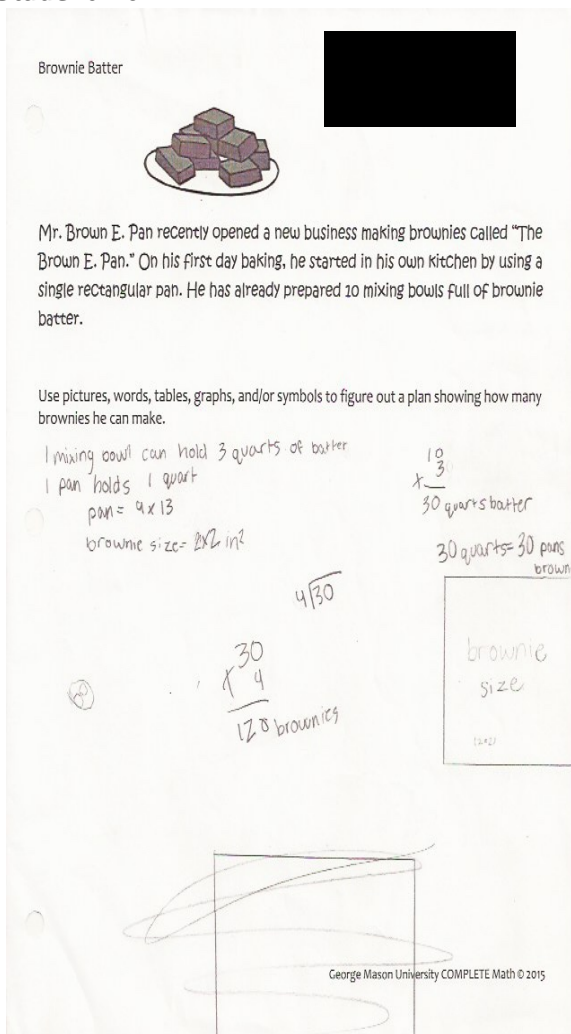 Brownie Batter
Mr. Brown E. Pan recently opened a new business making brownies called “The
Brown E. Pan.” On his first day baking, he started in his own kitchen by using a
single rectangular pan. He has already prepared 10 mixing bowls full of brownie
batter.
Use pictures, words, tables, graphs, and/or symbols to figure out a plan showing how many
brownies he can make.
1 mixing bowl can hold 3 quarts of batter
1 pan holds 1 quart
pan = 9 x 13
brownie size = 2x2 in²
10
x 3
30 quarts batter
30 quarts = 30 pans
brown
4)30
30
x 4
120 brownies
brownie
size
George Mason University COMPLETE Math © 2015